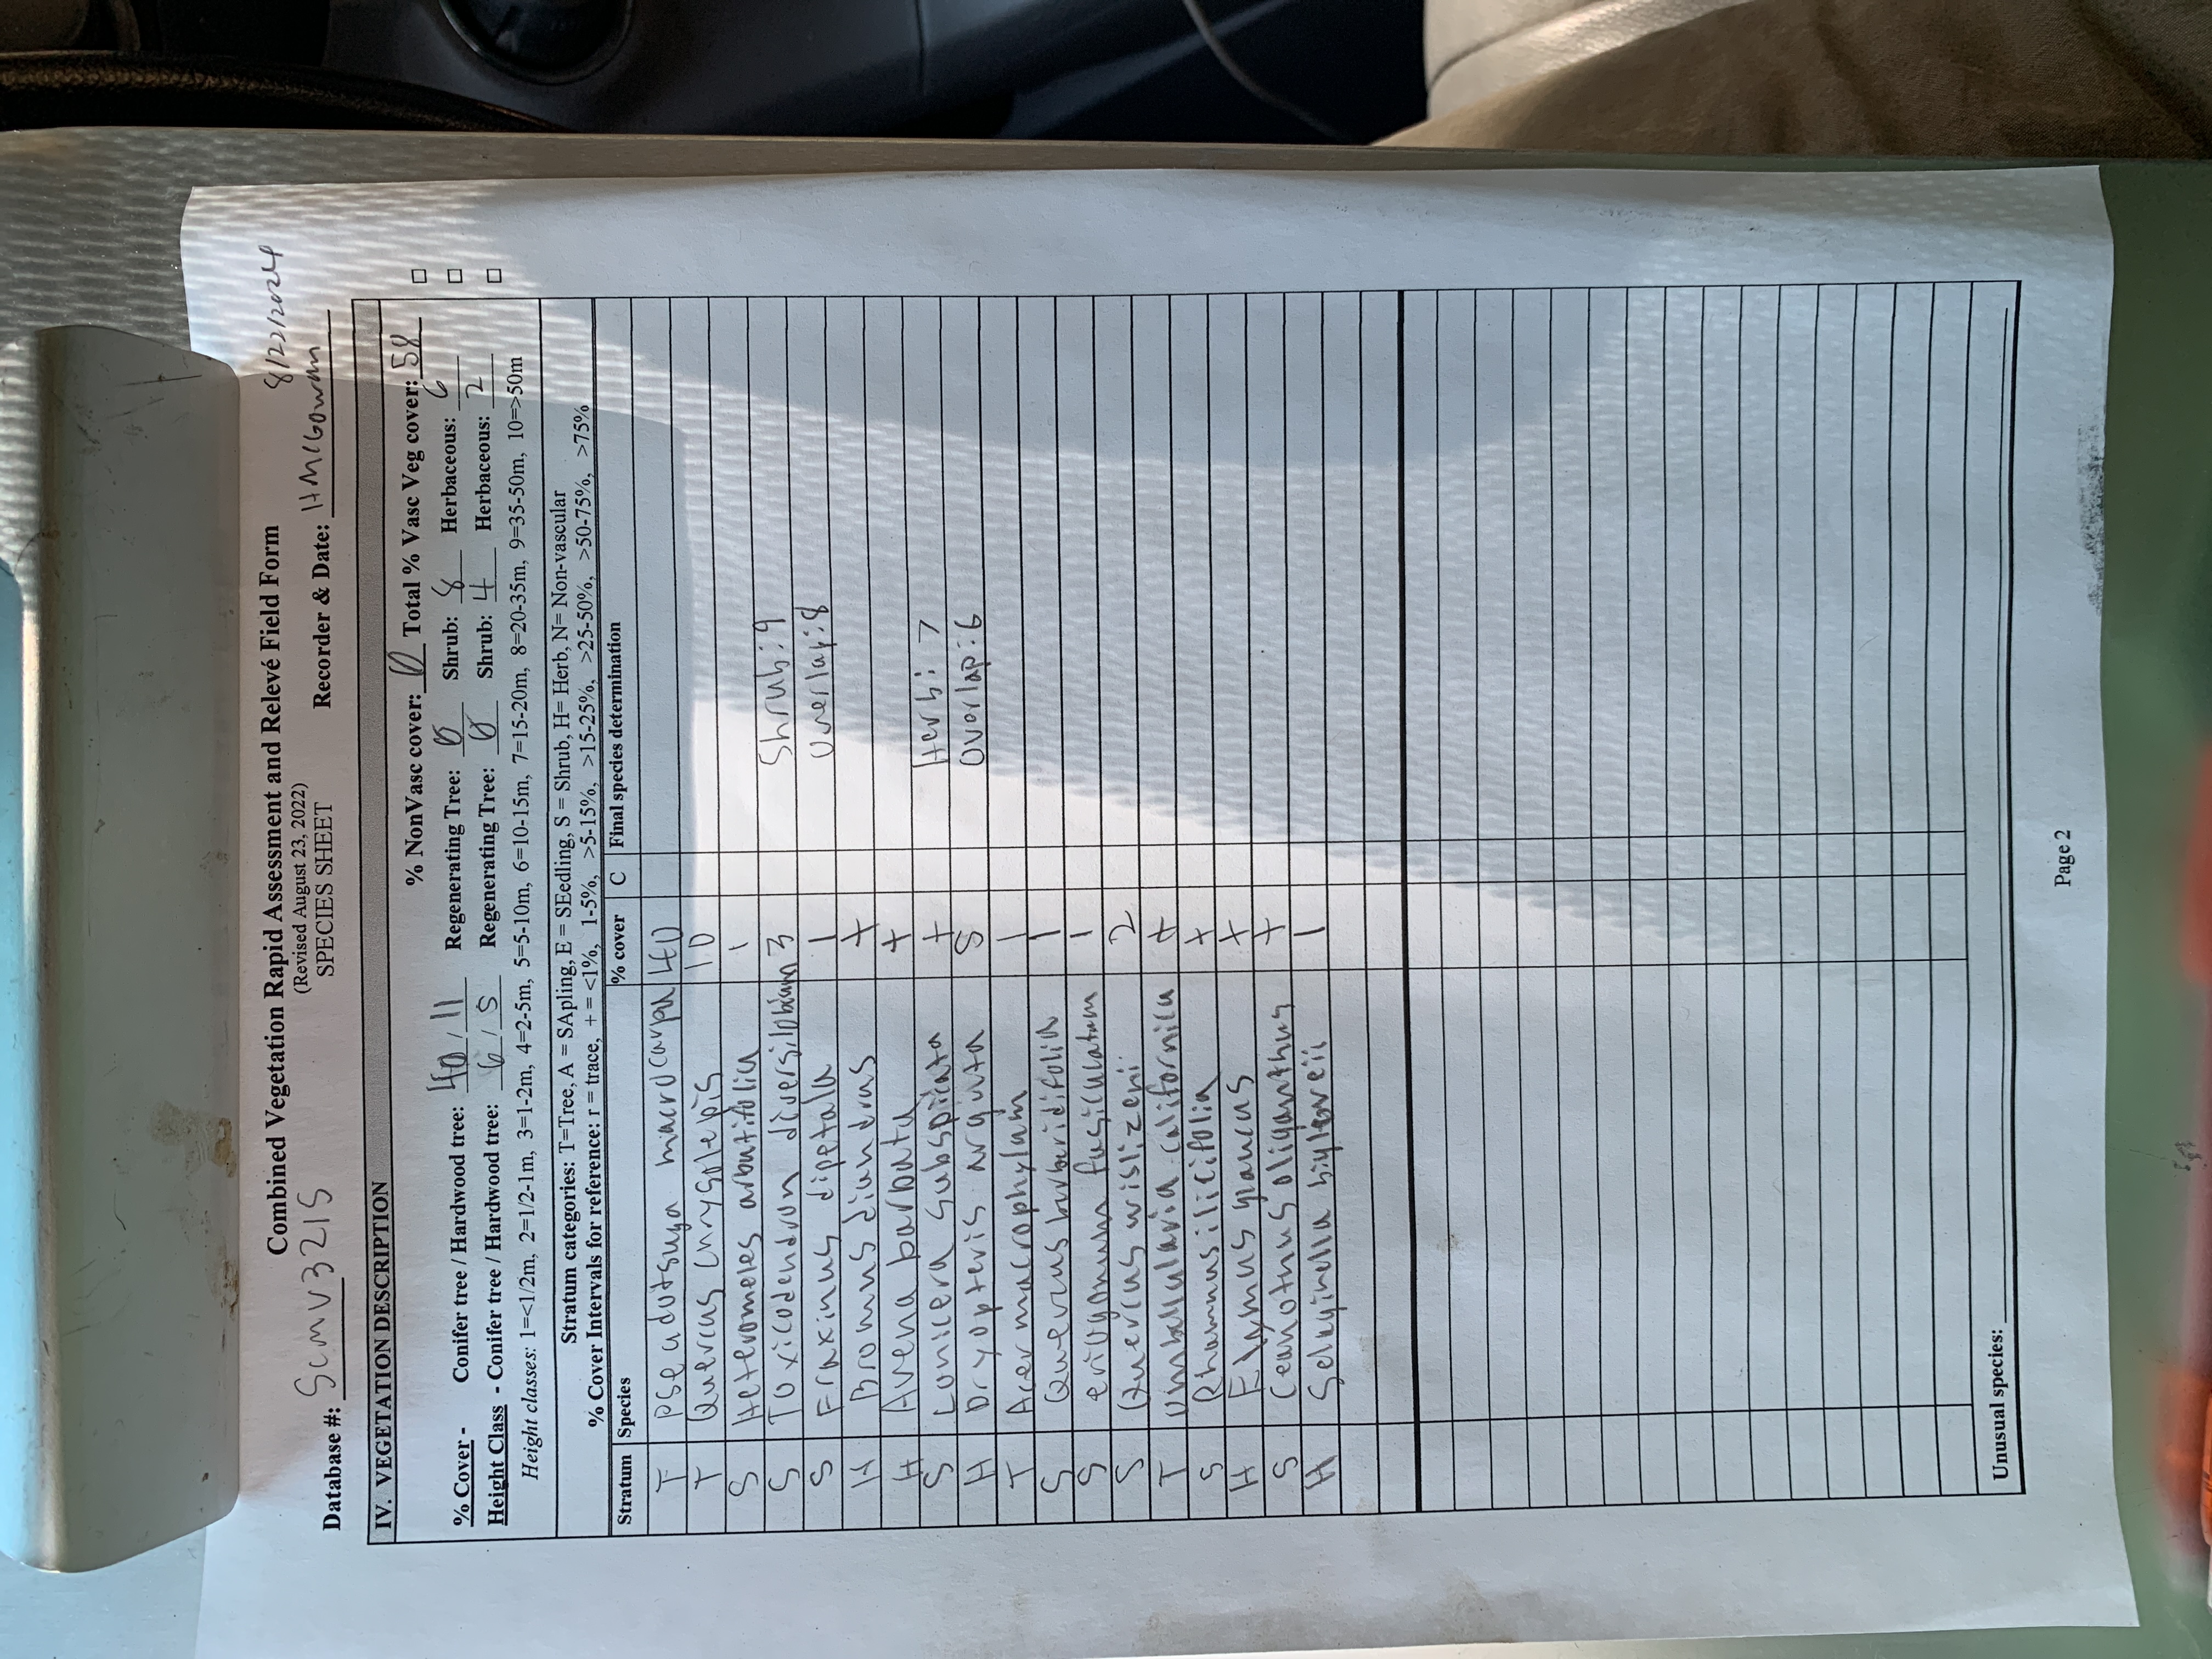 Combined Vegetation Rapid Assessment and Relevé Field Form
8/22/2024
(Revised August 23, 2022)
SPECIES SHEET
Database #: SCMV3215 Recorder & Date: HMcGowan
IV. VEGETATION DESCRIPTION
% NonVasc cover: 0 Total % Vasc Veg cover: 58
% Cover - Conifer tree / Hardwood tree: 40 / 11 Regenerating Tree: 0 Shrub: 8 Herbaceous: 6
Height Class - Conifer tree / Hardwood tree: 6 / 5 Regenerating Tree: 0 Shrub: 4 Herbaceous: 2
Height classes: 1=<1/2m, 2=1/2-1m, 3=1-2m, 4=2-5m, 5=5-10m, 6=10-15m, 7=15-20m, 8=20-35m, 9=35-50m, 10=>50m
Stratum categories: T=Tree, A = SApling, E = SEedling, S = Shrub, H= Herb, N= Non-vascular
% Cover Intervals for reference: r = trace, + = <1%, 1-5%, >5-15%, >15-25%, >25-50%, >50-75%, >75%
Stratum Species % cover C Final species determination
T Pseudotsuga macrocarpa 40
T Quercus chrysolepis 10
S Heteromeles arbutifolia 1
S Toxicodendron diversilobum 3 Shrub: 9
S Fraxinus dipetala 1 Overlap: 8
H Bromus diandrus +
H Avena barbata +
S Lonicera subspicata + Herb: 7
H Dryopteris arguta 5 Overlap: 6
T Acer macrophylum 1
S Quercus berberidifolia 1
S eriogonum fasciculatum 1
S Quercus wislizeni 2
T Umbellularia californica +
S Rhamnus ilicifolia +
H Elymus glaucus +
S Ceanothus oliganthus +
H Selaginella bigelovii 1
Unusual species:
Page 2